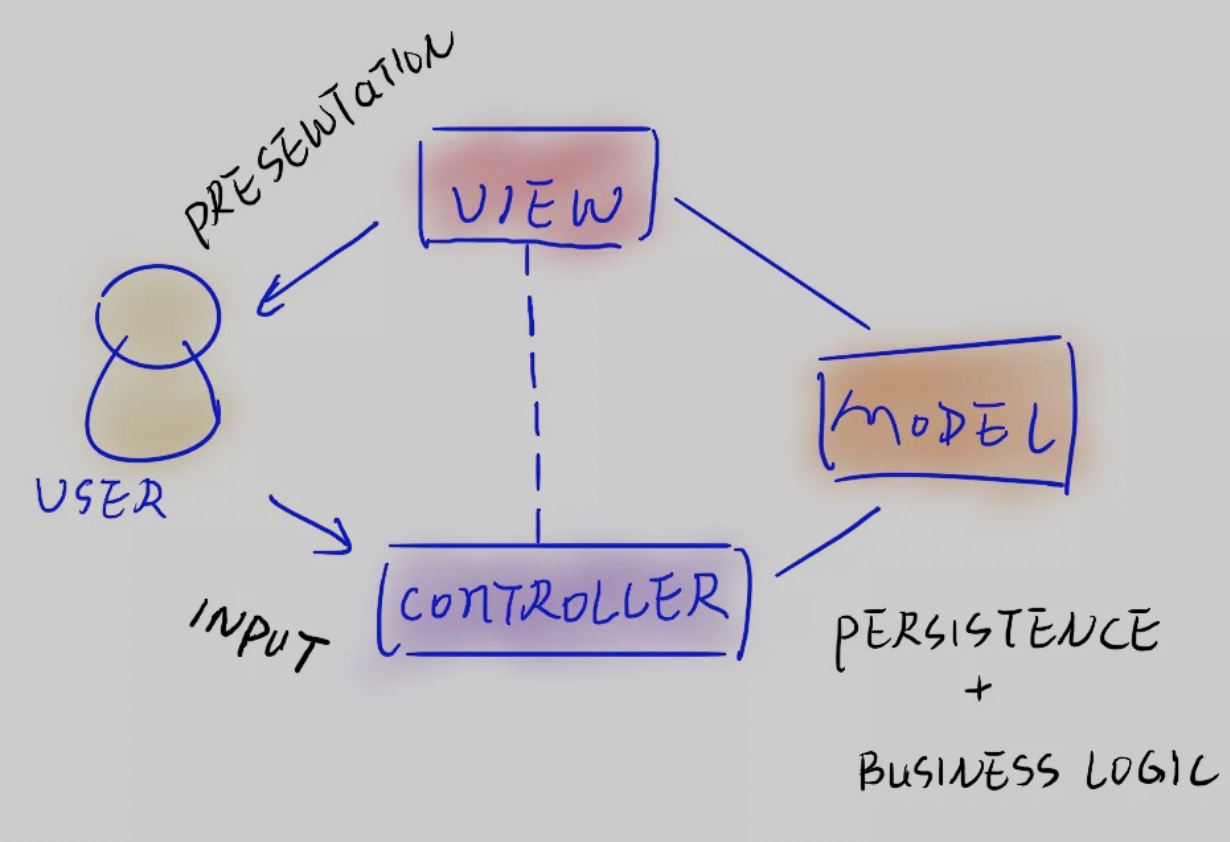 PRESENTATION
VIEW
MODEL
USER
CONTROLLER
INPUT
PERSISTENCE
+
BUSINESS LOGIC